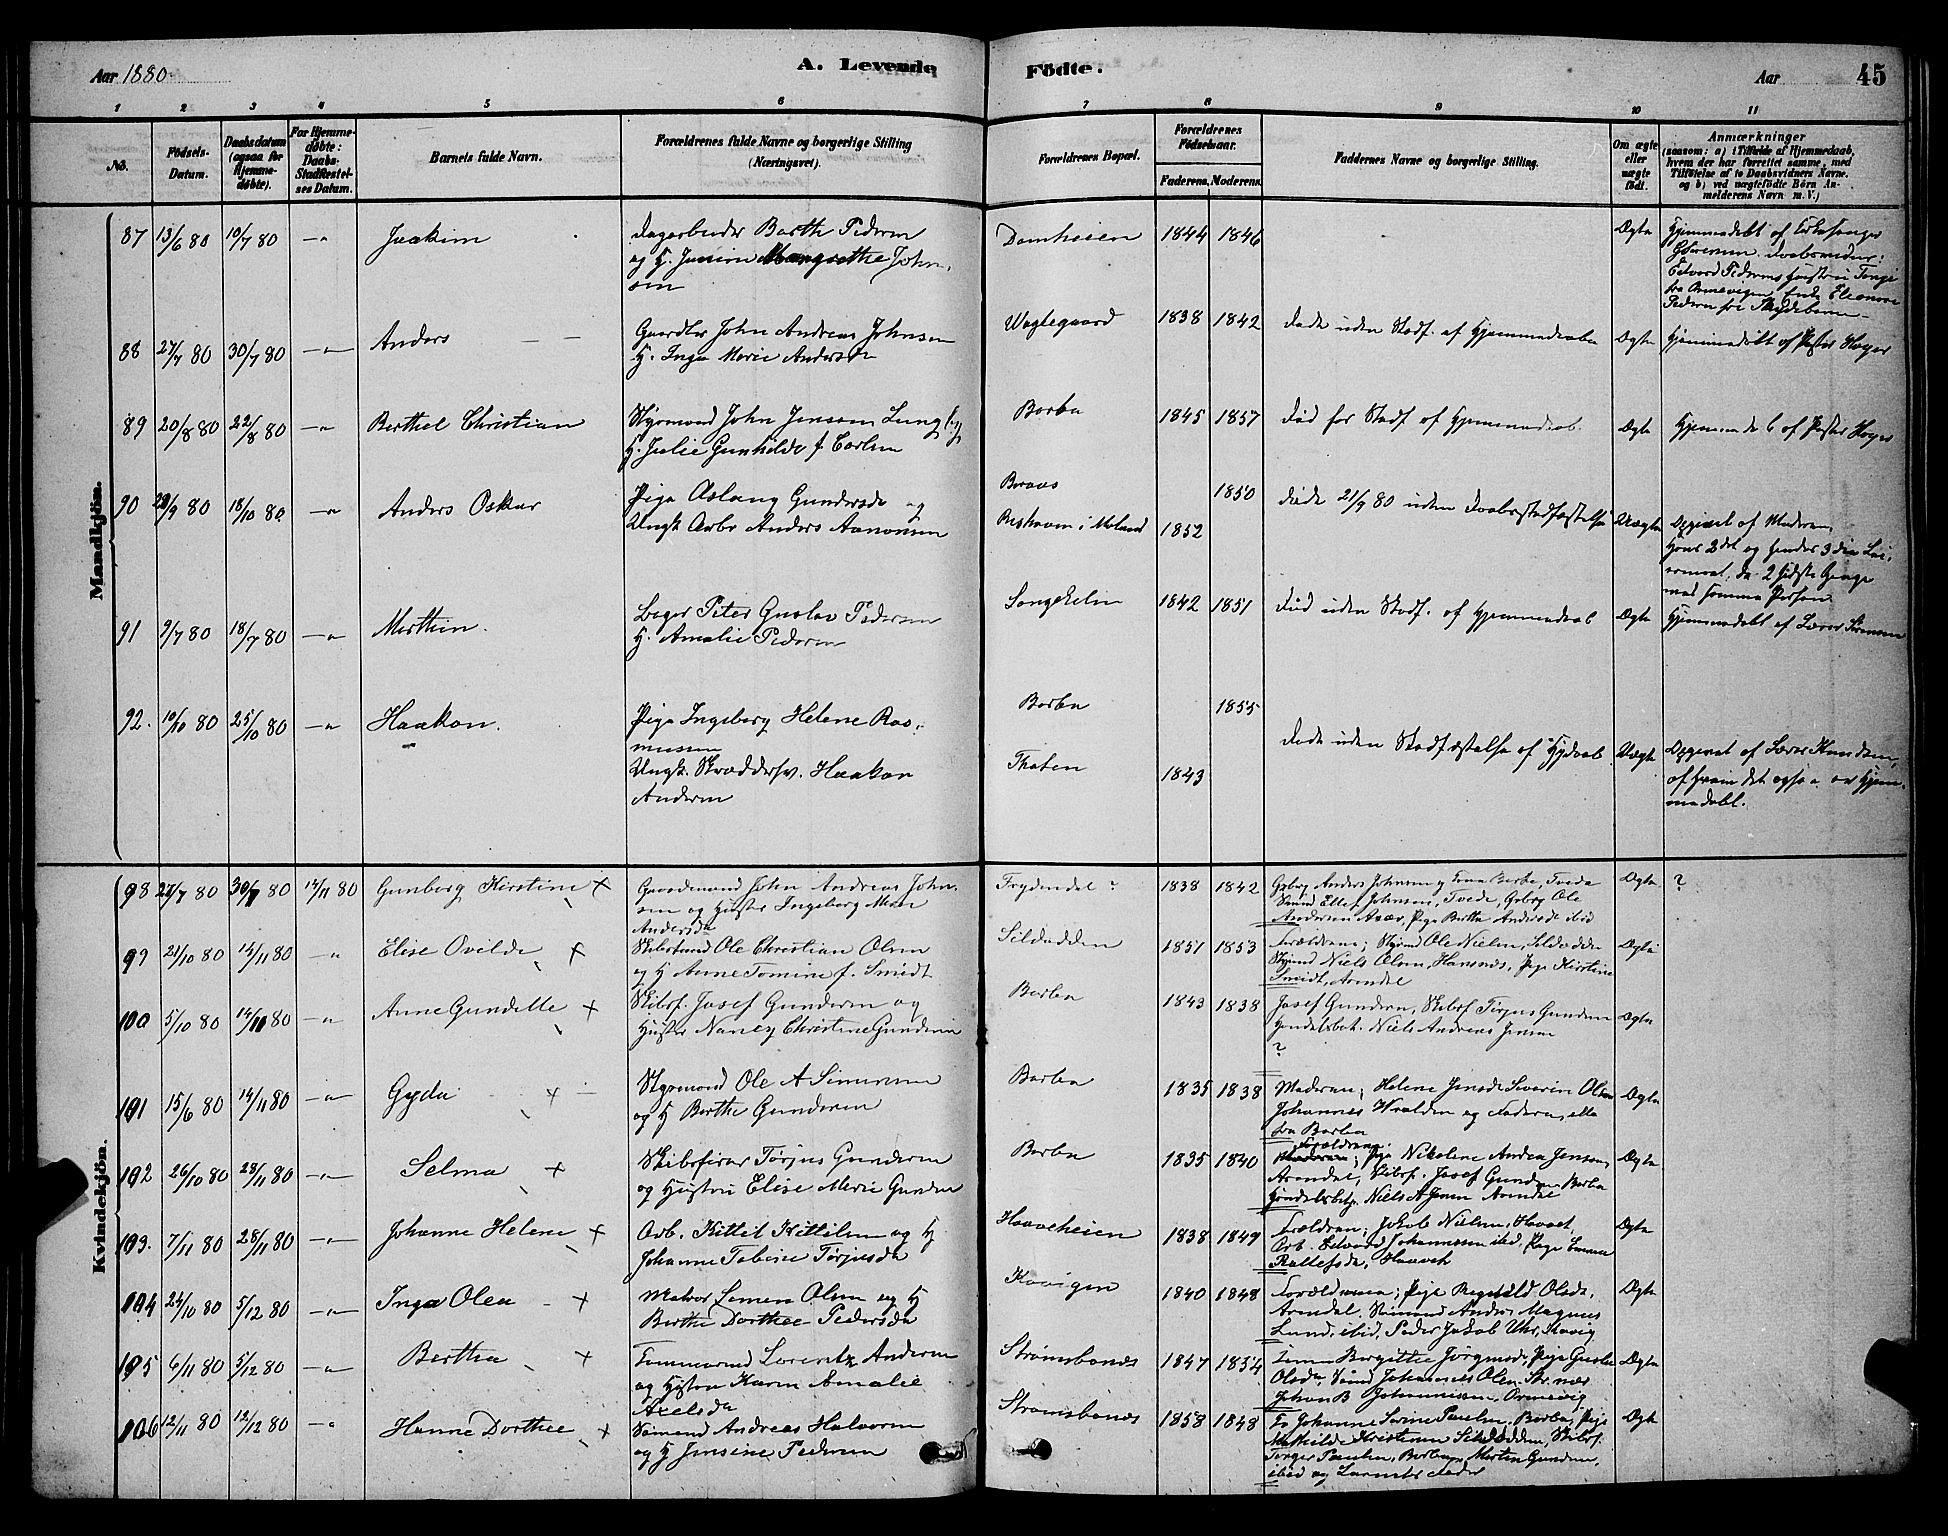 Aar 1880
A. Levende
Fødte.
Aar
45
1 2 3 4 5 6 7 8 9 10 11
No.
Fødsels-
Datum.
Daabsdatum
(ogsaa for
Hjemme-
døbte).
For Hjemme-
døbte:
Daabs-
Stadfæstel-
ses Datum.
Barnets fulde Navn.
Forældrenes fulde Navne og borgerlige Stilling
(Næringsvei).
Forældrenes Bopæl.
Forældrenes
Fødselsaar.
Faderens. Moderens.
Faddernes Navne og borgerlige Stilling.
Om ægte
eller
uægte
født.
Anmærkninger
(saasom: a) i Tilfælde af Hjemmedaab,
hvem der har forrettet samme, med
Tilføielse af to Daabsvidners Navne.
og b) ved uægtefødte Børn An-
melderens Navn m. V.)
Mandkjön.
87 13/6 80 10/7 80 —"— Joakim
Dagarbeider Barth Pedersen
og H. Margrethe John-
sen
Domheien 1844 1846 Ægte
Hjemmedøbt af Kirkesanger
88 27/7 80 30/7 80 —"— Anders
Gaardbr John Andreas Johnsen
H. Inga Marie Andersda
Vragtegaard 1838 1842 Døde uden Stadf. af Hjemmedaaben Ægte Hjemmedøbt af Pastor Høyer
89 20/8 80 22/8 80 —"— Berthel Christian
Styrmand John Jensen Lung
H. Julie Gunhilde f. Carlsen
Borbu 1845 1857 Død før Stadf. af Hjemmedaab. Ægte Hjemmedb af Pastor Høyer
90 20/9 80 18/10 80 —"— Anders Oskar
Pige Aslaug Gundersda og
Ungk. Arbr Anders Aanonsen
Braaes 1850
i Moland 1852
Døde 21/9 80 uden Daabsstadfæstelse Uægte Opgivet af Moderen,
Hans 2det og hendes 3die Lei-
ermaal, de 2 sidste Gange
med samme Person
91 9/7 80 18/7 80 —"— Marthin.
Peter Gustav Pedersen
H. Amalie Pedersen
Songekilen 1842 1851 Død uden Stadf. af Hjemmedaab Ægte Hjemmedøbt af Lærer Sørensen
92. 10/10 80 25/10 80 —"— Haakon.
Pige Ingeborg Helene Ras-
mussen
Ungk. Skræddersv. Haakon
Andersen
Borbu 1855
Tholen 1843
Døde uden Stadfæstelse af Hjdaab Uægte Opgivet af Lærer Knudsen,
af hvem det ogsaa er Hjem-
medøbt.
Kvindekjön.
98 27/7 80 30/7 80 14/11 80 Gunborg Kirstine +
Gaardmand John Andreas John-
sen og Hustru Ingeborg Marie
Andersda
Frydendal ? 1838 1842 Gbrbg Anders Johnsen og Kone Berthe, Tvede
Smand Ellef Johnsen, Tvede, Gbrbg Ole
Andersen Asæv, Pige Bertha Andersda ibid
Ægte ?
99 21/10 80 14/11 80 —"— Elise Ovilde +
Skibstmd Ole Christian Olsen
og H Anne Tomine f. Smidt
Sildodden 1851 1853 Forældrene; Styrmd Ole Nielsen, Sildodden
Styrmd Niels Olsen, Hansnæs, Pige Kirstine
Smidt, Arendal
Ægte
100 5/10 80 14/11 80 —"— Anne Gundelle +
Skibsf. Josef Gundersen og
Hustru Nancy Christine Gundersen
Borbu 1843 1838 Josef Gundersen, Skibsf Tørjus Gundersen
Handelsbet. Niels Andreas Jensen
?
Ægte
101 15/6 80 14/11 80 —"— Gyda +
Styrmand Ole A Simonsen
og H Berthe Gundersen
Borbu 1835 1838 Moderen; Helene Jensda Severin Olsen
Johannes Wrolden og Faderen, alle
fra Borbu
Ægte
102 26/10 80 28/11 80 —"— Selma +
Skibsfører Tørjus Gundersen
og Hustru Elise Marie Gundersen
Borbu 1835 1840 Forældrene;
Pige Nikoline Andrea Jensen,
Arendal, Skibsf. Josef Gundersen Borbu
Handelsbetj. Niels A Jensen Arendal
Ægte
103. 7/11 80 28/11 80 —"— Johanne Helene +
Arb. Kittil Kittilsen og H
Johanne Tobine Tørjusda
Haaveheien 1838 1849 Forældrene; Jakob Nielsen, Haavet,
Arb. Edvard Johannessen ibid, Pige Emma
Rollefsda, Haavet
Ægte
104 24/10 80 5/12 80 —"— Inga Olea +
Matros Simen Olsen og H
Berthe Dorthee Pedersda
Kovigen 1840 1848 Forældrene; Pige Ragnild Olsda,
Arendal, Sømand Anders Magnus
Lund, ibid, Peder Jakob Uhr, Kovig
Ægte
105 6/11 80 5/12 80 —"— Berthea +
Tømmermd Lorentz Andersen
og Hustru Karen Amalie
Axelsda
Strømsbonæs 1847 1854
Johan B Johannessen, Ormevig
Ægte
106 12/11 80 12/12 80 —"— Hanne Dorthee +
Sømand Andreas Halvorsen
og H Jensine Pedersen
Strømsbonæs 1858 1848 Johanne Sørine Paulsen, Borbu, Pige
Mathilde Kristiansen Sildodden, Skibsf.
Tørger Paulsen, Borbu, Martin Gundersen,
ibid og Barnets Fader
Ægte